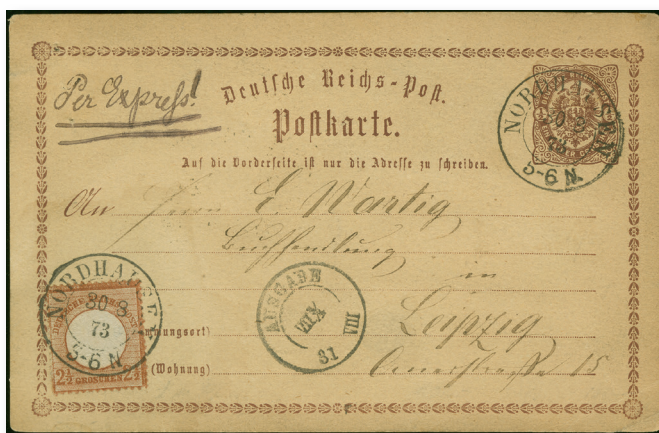 Per Expreß!
Deutsche Reichs-Post.
Postkarte.
Auf die Vorderseite ist nur die Adresse zu schreiben.
NORDHAUSEN
30 8
73
5-6 N.
An Herrn E. Wartig
Buchhandlung
in
Leipzig
NORDHAUSEN
30 8
73
5-6 N.
2½ GROSCHEN 2½
AUSGABE
31
VIII
(Wohnung)
15